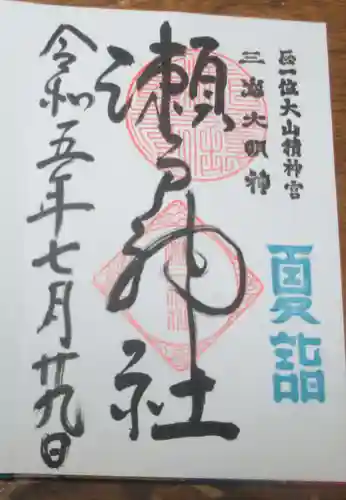 正一位大山積神宮
三嶋大明神
夏詣
瀬戸神社
令和五年七月廿九日